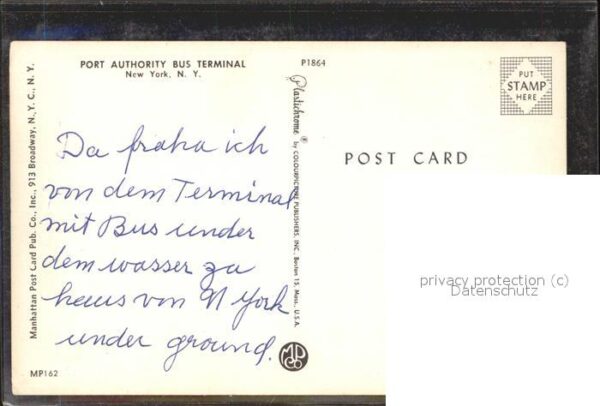 PORT AUTHORITY BUS TERMINAL
New York, N. Y.
P1864
PUT
STAMP
HERE
POST CARD
Manhattan Post Card Pub. Co., Inc., 913 Broadway, N. Y. C., N. Y.
Plastichrome ® by COLOURPICTURE PUBLISHERS, INC. Boston 15, Mass., U.S.A.
Da fraha ich
von dem Terminal
mit Bus under
dem wasser za
haus von N York
under ground.
MPCo
MP162
privacy protection (c)
Datenschutz